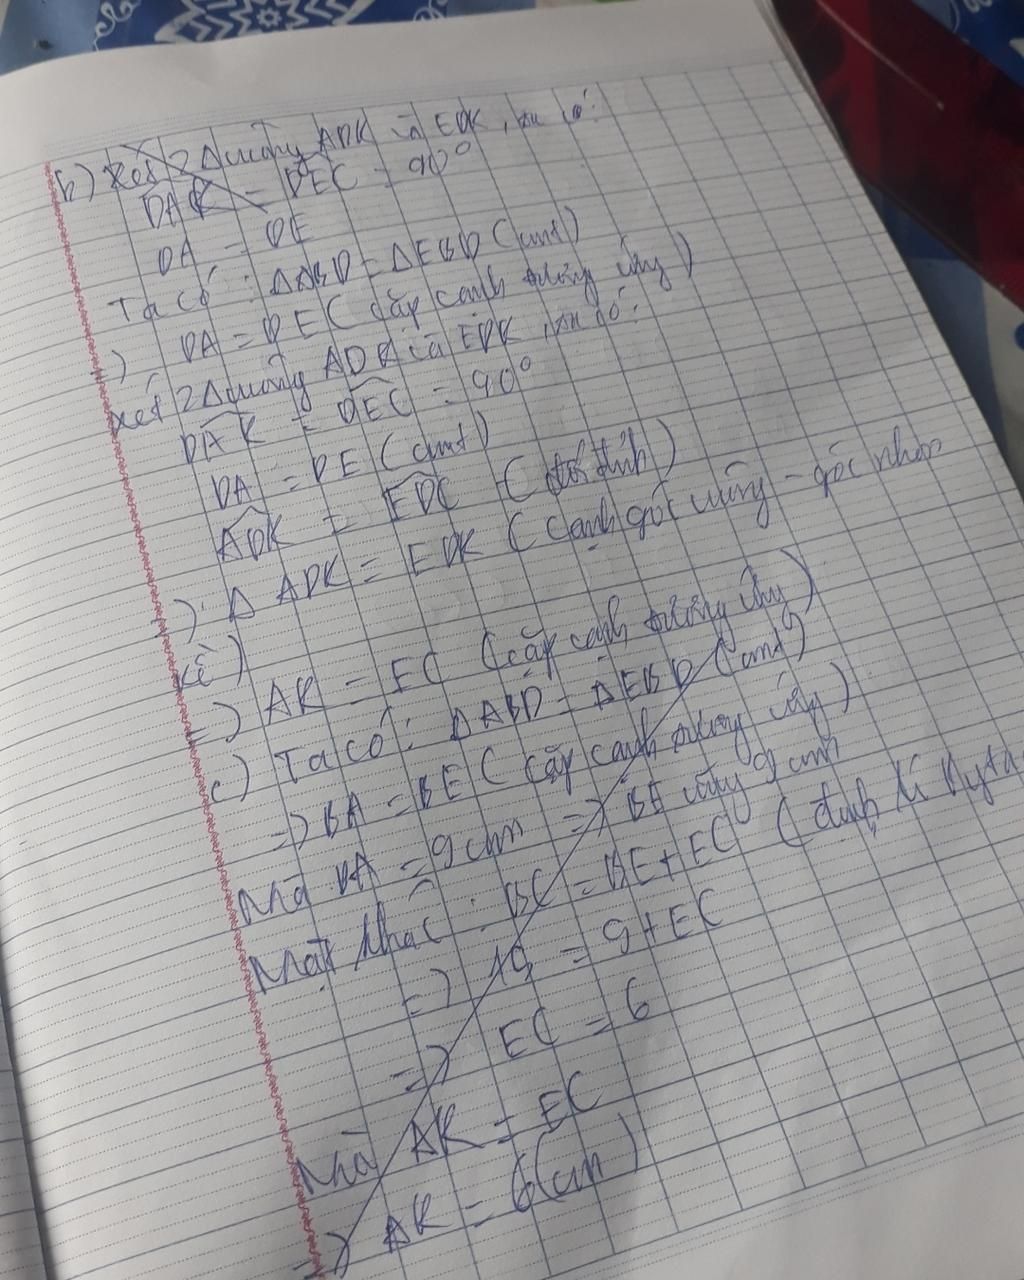 b) Xét 2 Δ vuông ADK và EDK, ta có:
DAK = DEC = 90°
DA = DE
Ta có: ΔABD = ΔEBD (cmt)
=) DA = DE (cặp cạnh tương ứng)
Xét 2 Δ vuông ADK và EDK, ta có:
DAK = DEC = 90°
DA = DE (cmt)
ADK = EDC (đối đỉnh)
=) Δ ADK = EDK (cạnh góc vuông - góc nhọn
kề)
=) AK = EC (cặp cạnh tương ứng)
c) Ta có: ΔABD = ΔEBD (cmt)
=) BA = BE (cặp cạnh tương ứng)
Mà BA = 9cm =) BE cũng 9cm
Mặt khác: BC = BE + EC (định lí Pyta
=) 15 = 9 + EC
=) EC = 6
Mà AK = EC
=) AK = 6(cm)